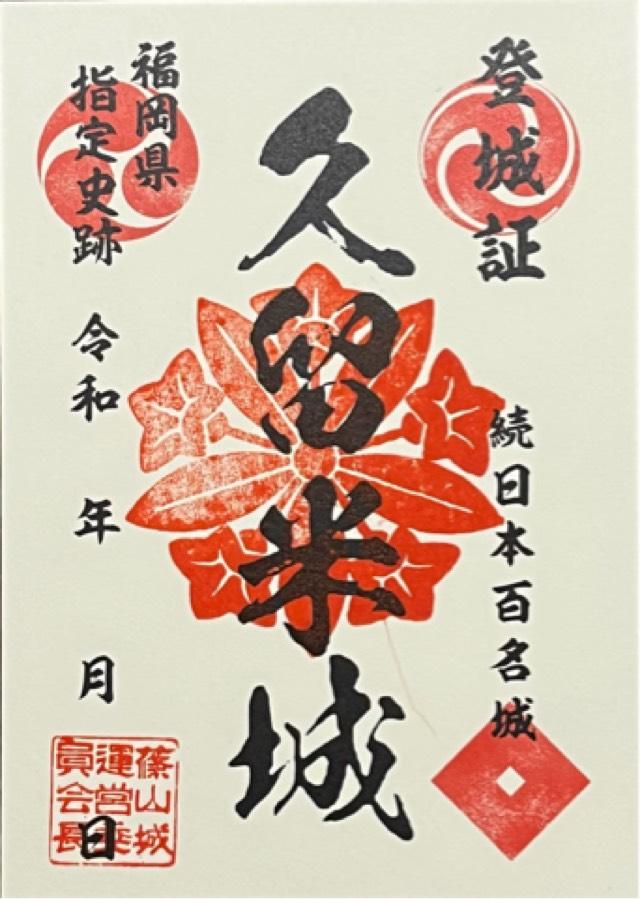 登城証
続日本百名城
久留米城
福岡県
指定史跡
令和 年 月 日
篠山城
運営委
員会長